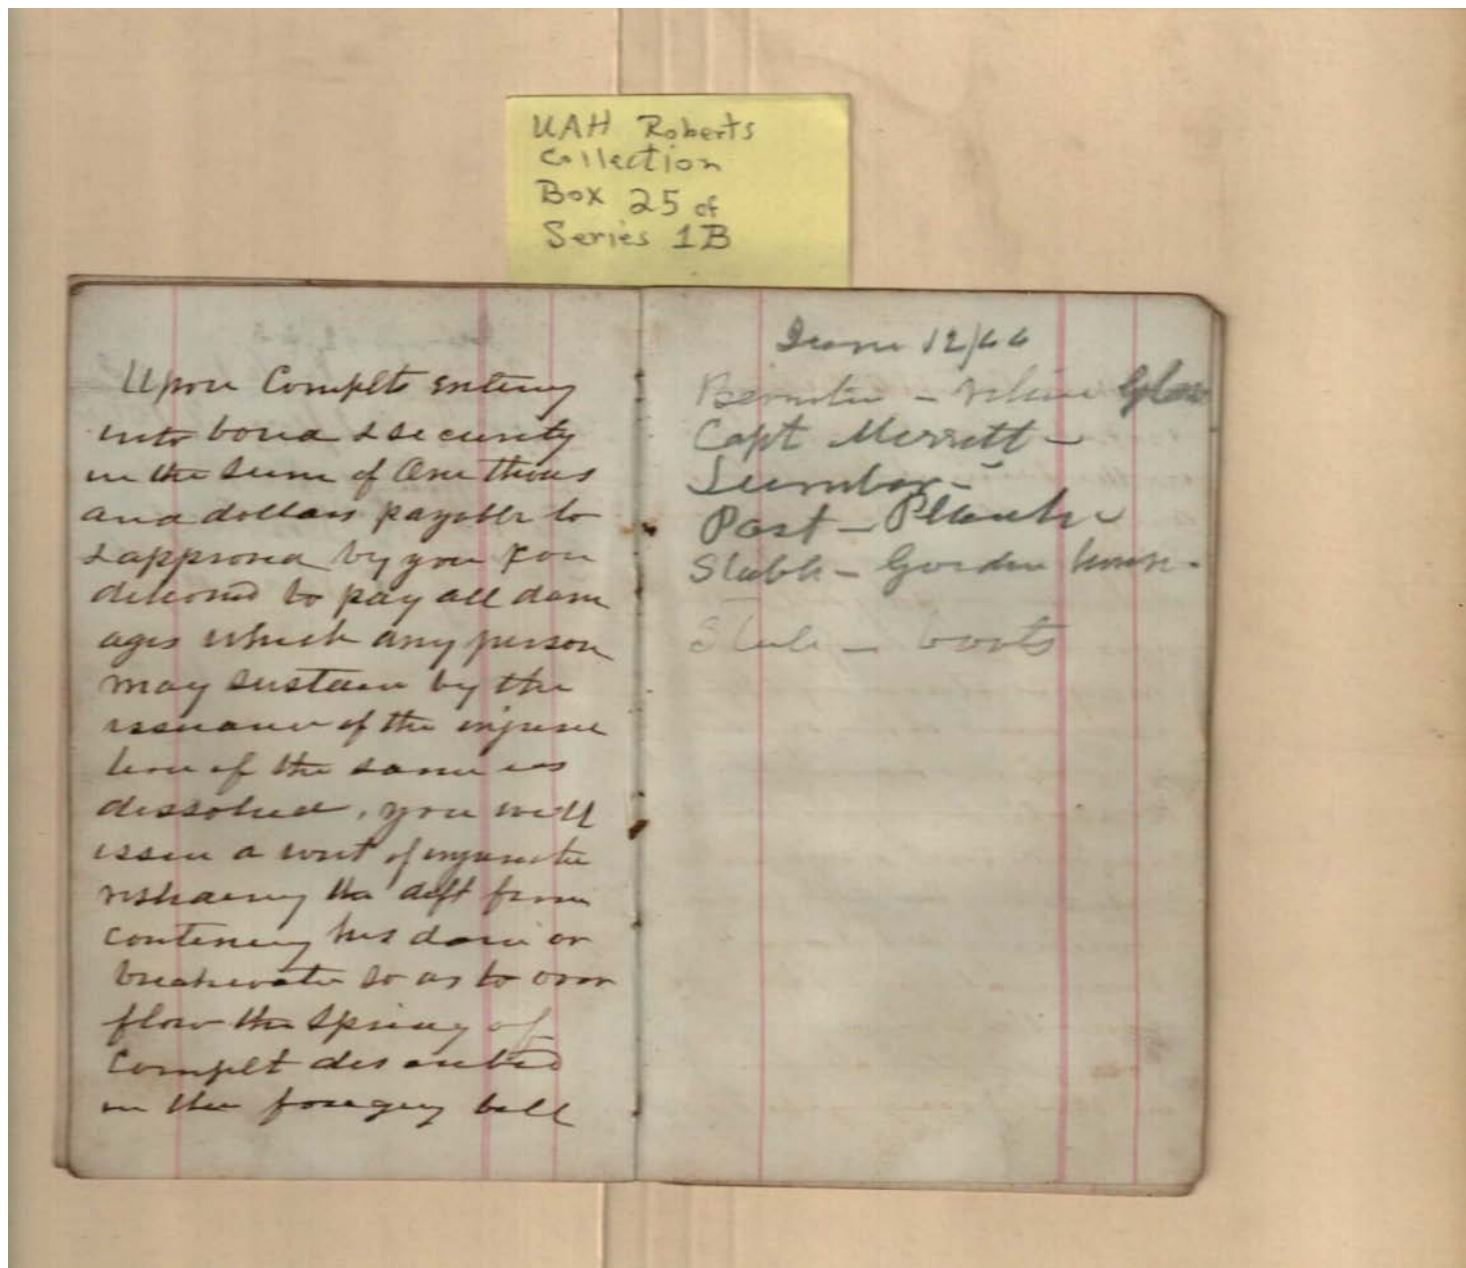 UAH Roberts
Collection
Box 25 of
Series 1B
Upon Complts entering
into bond & security
in the sum of One thous
and dollars payable to
& approved by you & con
ditioned to pay all dam
ages which any person
may sustain by the
issuance of the injunc
tion if the same is
dissolved, you will
issue a writ of injunctio
restraing the deft from
continuing his dam or
breakwater so as to over
flow the Spring of
Complt described
in the foregoing bill
June 12/66
Capt Merrett -
Lumber -
Post - Planks
Stable - Garden house -
- boots